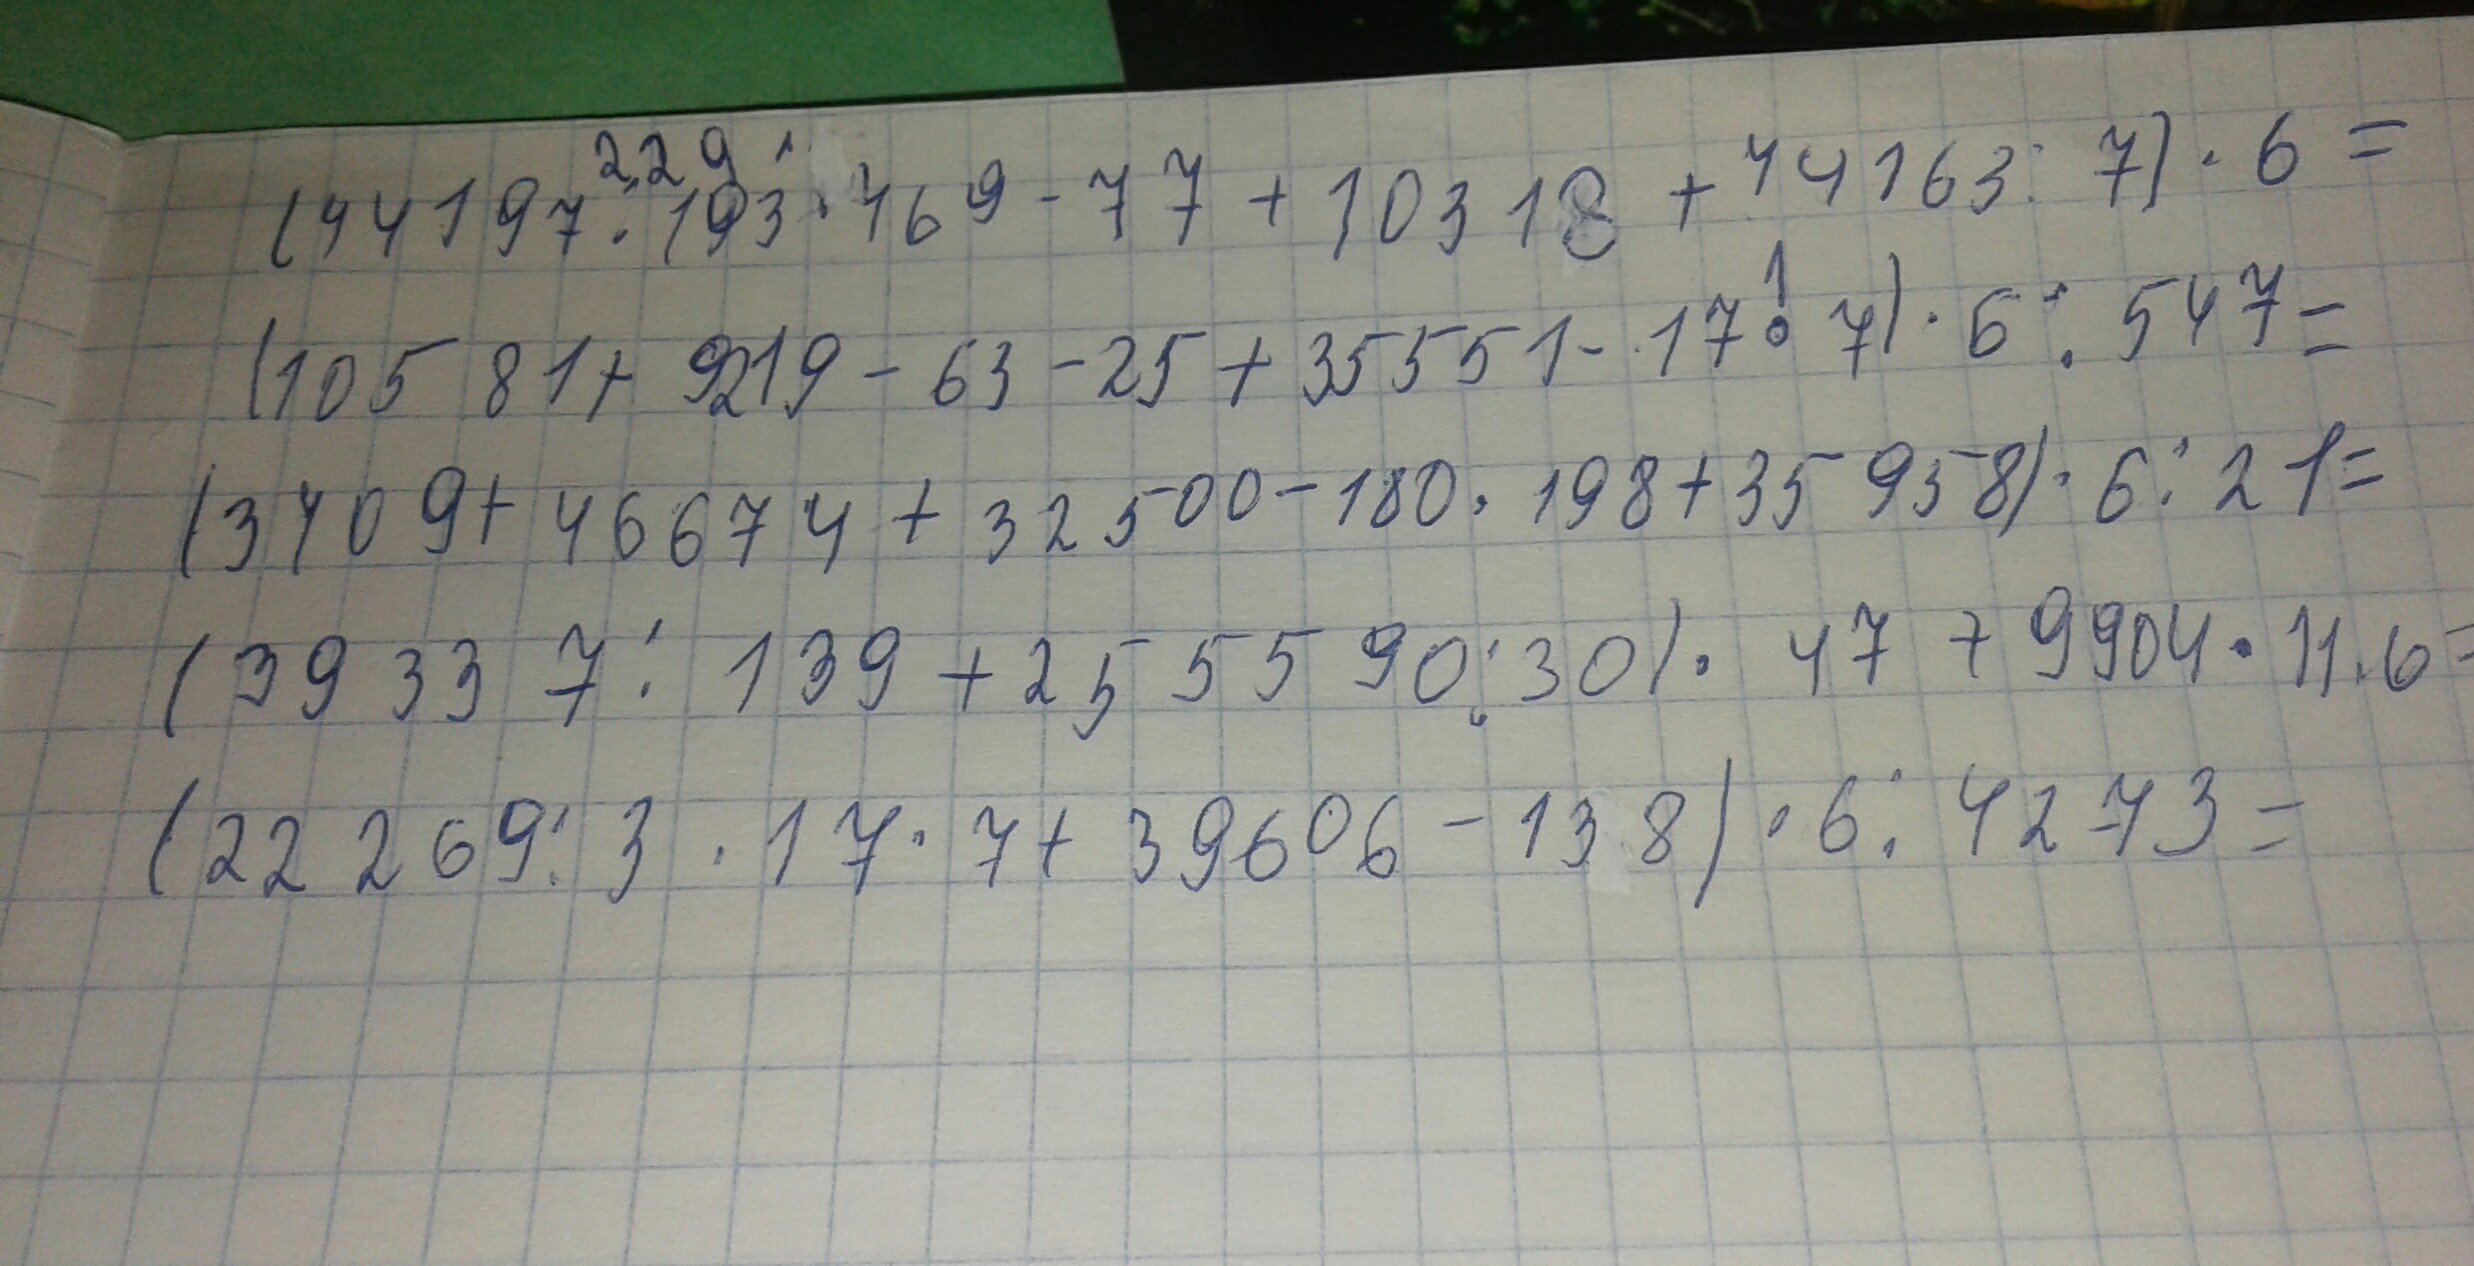 229
(44197:193·469-77+10318+44163:7)·6=
(10581+9219-63-25+35551-17·7)·6:547=
(3409+46674+32500-180·198+35958)·6:21=
(39337:139+255590:30)·47+9904·11·6=
(22269:3·17·7+39606-138)·6:4273=